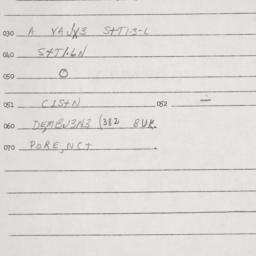 030 A VAJX3 S+T1.3-L
040 S+T1.6N
050 O
051 C1S+N 052 -
060 DEMBN3N3 (382 BUR.
070 PORE,NC+